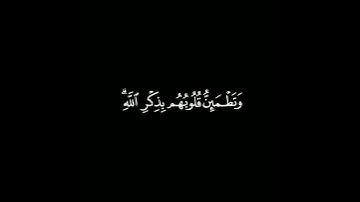 وَتَطْمَئِنُّ قُلُوبُهُم بِذِكْرِ ٱللَّهِۗ